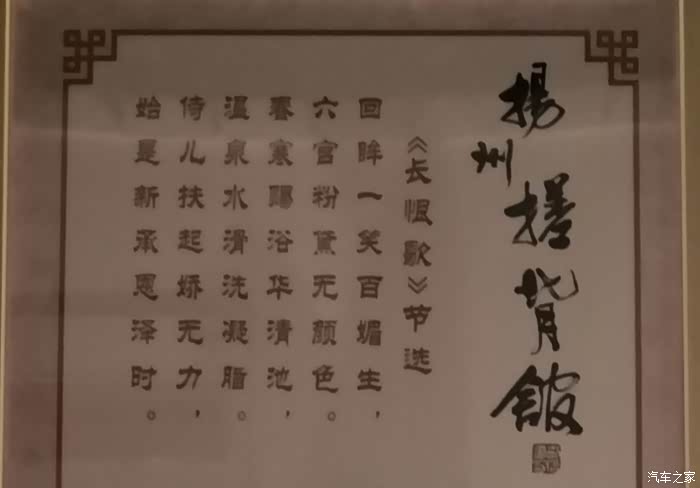 揚州搓背館
《长恨歌》节选
回眸一笑百媚生，
六宫粉黛无颜色。
春寒赐浴华清池，
温泉水滑洗凝脂。
侍儿扶起娇无力，
始是新承恩泽时。
汽车之家